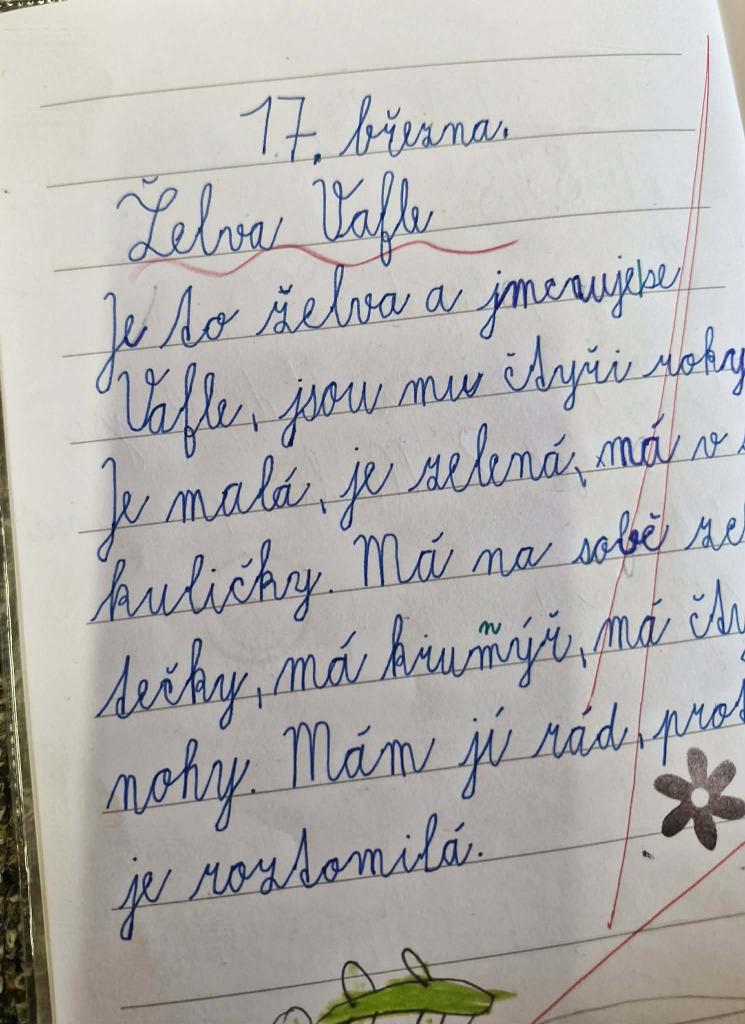 17. března.
Želva Vafle
Je to želva a jmenuje se
Vafle, jsou mu čtyři roky
Je malá, je zelená, má v
kuličky. Má na sobě ze
tečky, má krumýř, má čty
nohy. Mám jí rád, prot
je roztomilá.